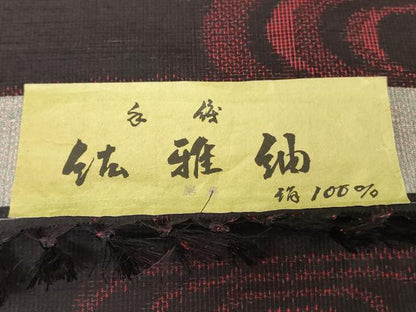 手織
紘雅紬
絹100%